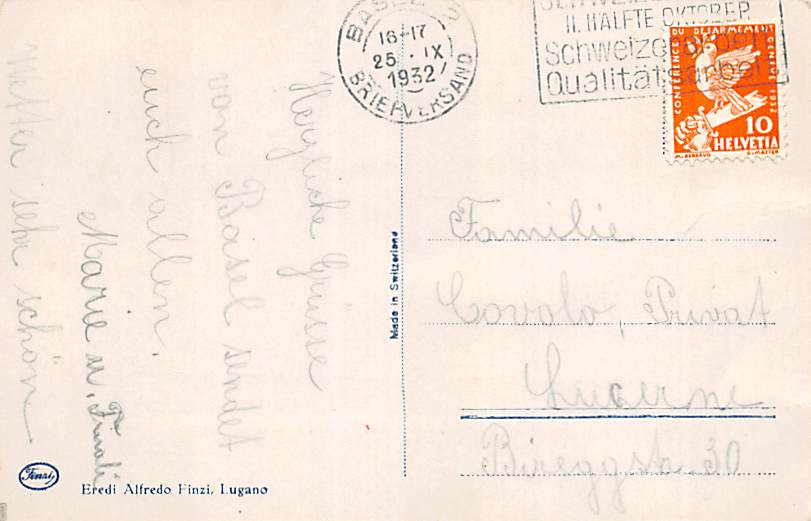 BASEL 2
16-17
25. IX
1932
BRIEFVERSAND
II. HÄLFTE OKTOBER
Schweizer
Qualitätsarbeit
CONFÉRENCE DU DÉSARMEMENT GENÈVE 1932
10
HELVETIA
Herzliche Grüsse
von Basel sendet
euch allen.
Marie u.
Wetter sehr schön
Made in Switzerland
Familie
Covolo, Privat
Lucerne
Bireggstr 30
Finzi
Eredi Alfredo Finzi, Lugano